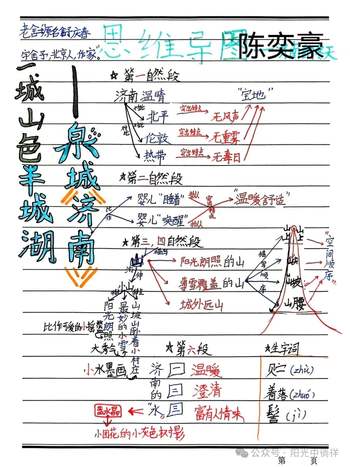 思维导图
陈奕豪
老舍 舒庆春
字舍予,北京人,作家。
一城山色半城湖
泉城济南
★第一自然段
济南 温晴
"宝地"
北平
无风声
伦敦
无重雾
热带
无毒日
★第二自然段
婴儿"睡着"
婴儿"唤醒"
"温暖舒适"
★第三、四自然段
山
阳光朗照的山
薄雪覆盖的山
城外远山
山上
山尖
山坡
山腰
"空间顺序"
小山
阳光朗照
小雪
山坡
大水气
小水墨画
★第六段
济南的"水"
温暖
澄清
富有人情味
蓝水晶
★生字词
贮(zhù)
着落(zhuó)
髻(jì)
公众号·阳光中徜徉
第 页